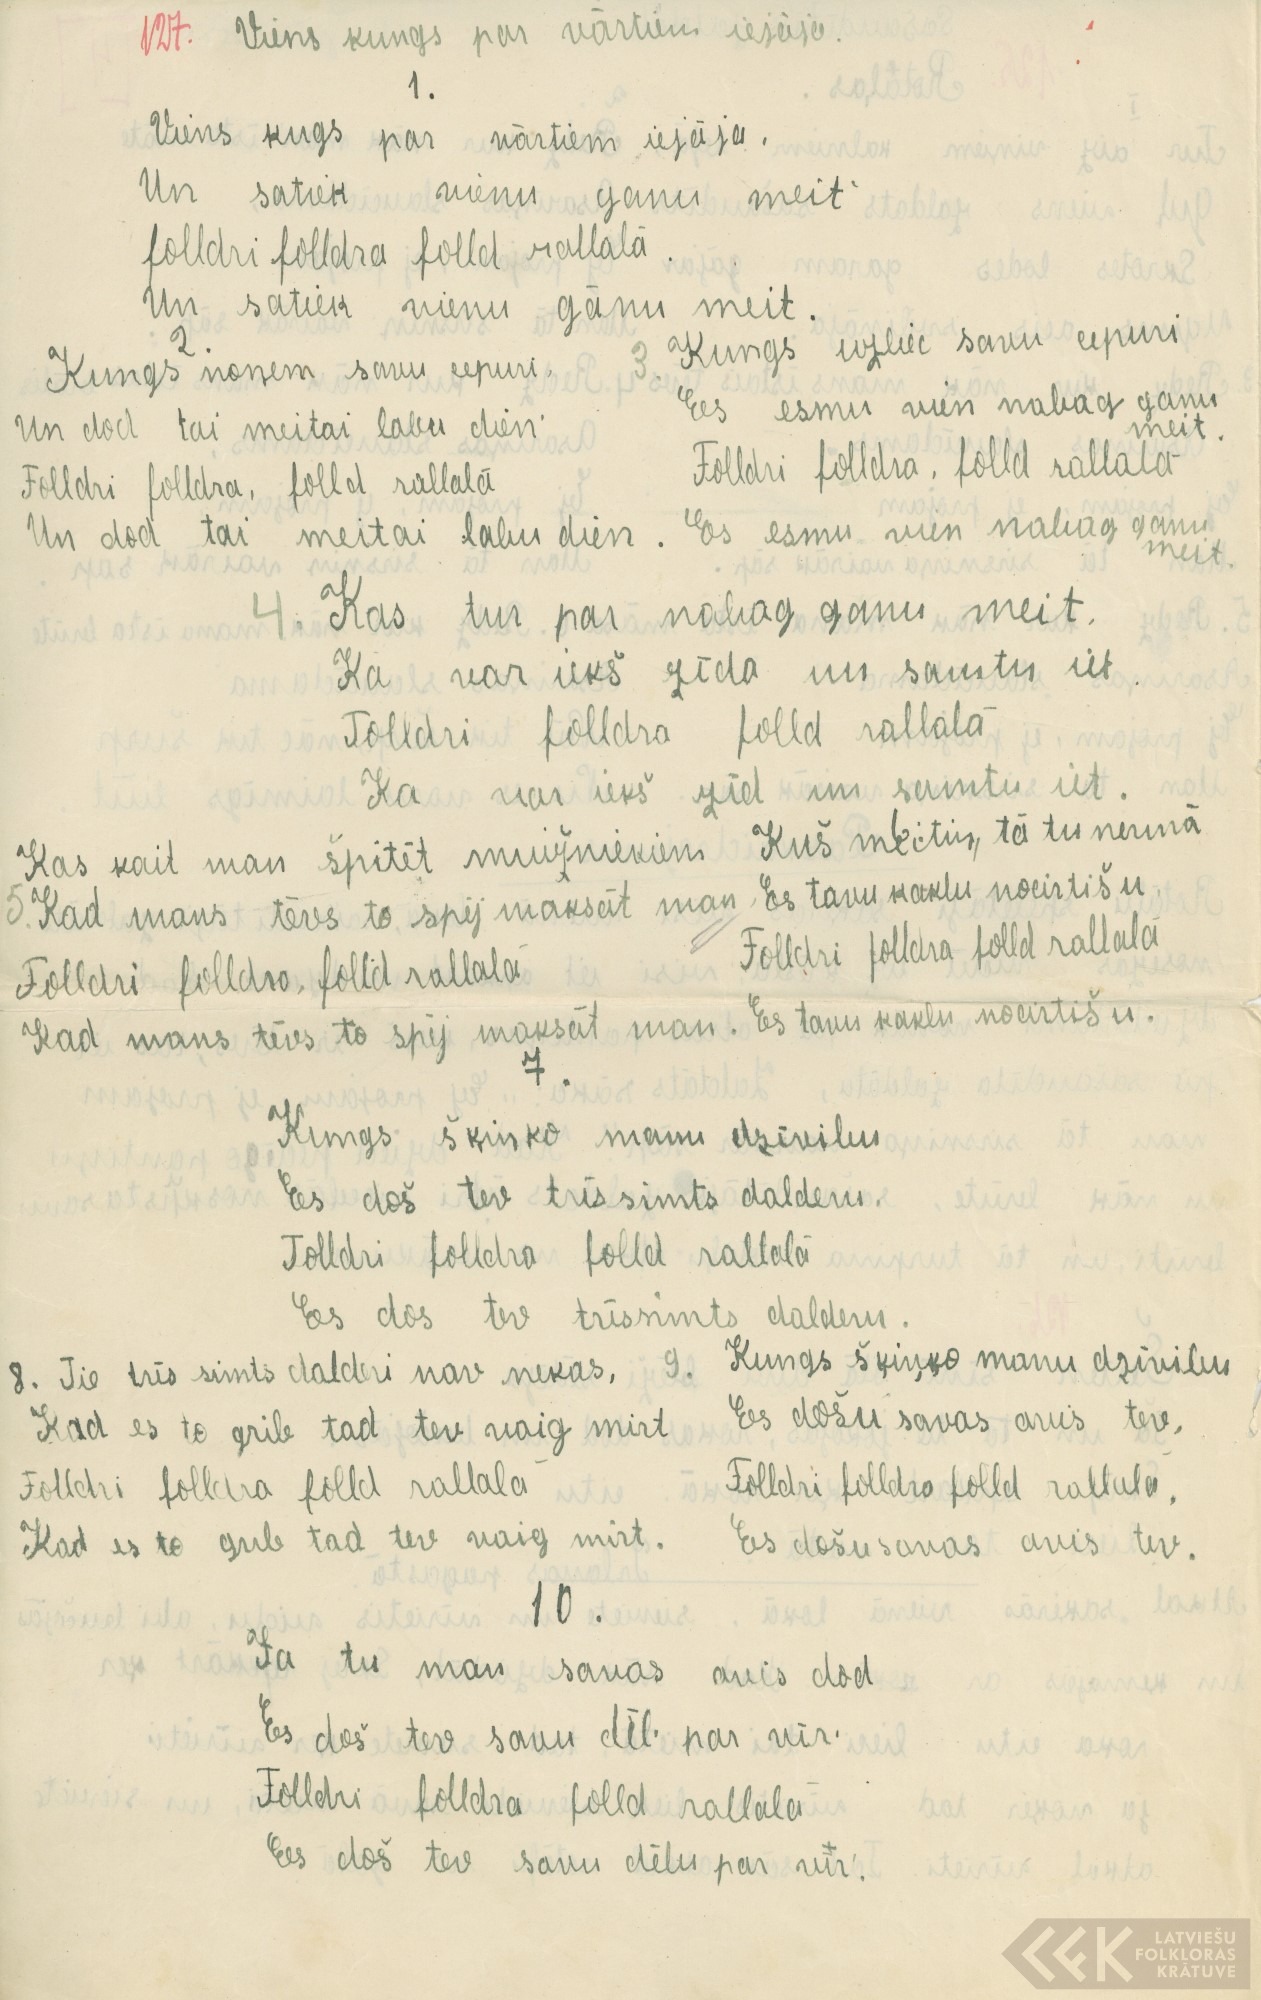 127. Viens kungs par vārtiem iejāja.
1.
Viens kugs par vārtiem iejāja.
Un satiek vienu ganu meit'
folldri folldra folld rallalā.
Un satiek vienu gānu meit.
2.
Kungs noņem savu cepuri.
Un dod tai meitai labu dien'
Folldri folldra, folld rallalā
Un dod tai meitai labu dien.
3. Kungs uzliec savu cepuri
Es esmu vien nabag ganu
meit.
Folldri folldra, folld rallalā
Es esmu vien nabag ganu
meit.
4. Kas tur par nabag ganu meit.
Ka var iekš zīda un samtu iet.
Folldri folldra folld rallalā
Ka var iekš zīd un samtu iet.
Kas kait man špitēt muižniekiem
5. Kad mans tēvs to spēj maksāt man
Folldri folldra, folld rallalā
Kad mans tēvs to spēj maksāt man.
Kuš meitiņ, tā tu nerunā
Es tavu kaklu nocirtīšu.
Folldri folldra folld rallalā
Es tavu kaklu nocirtīšu.
7.
Kungs šķiņko manu dzīvibu
Es doš tev trīssimts dalderu.
Folldri folldra folld rallalā
Es dos tev trīssimts dalderu.
8. Tie trīs simts dalderi nav nekas,
Kad es to grib tad tev vaig mirt
Folldri folldra folld rallalā
Kad es to grib tad tev vaig mirt.
9. Kungs šķiņko manu dzīvibu
Es došu savas avis tev,
Folldri folldra folld rallalā,
Es došu savas avis tev.
10.
Ja tu man savas avis dod
Es doš tev savu dēl' par vīr'
Folldri folldra folld rallalā
Es doš tev savu dēlu par vīr'.
LATVIEŠU
FOLKLORAS
KRĀTUVE